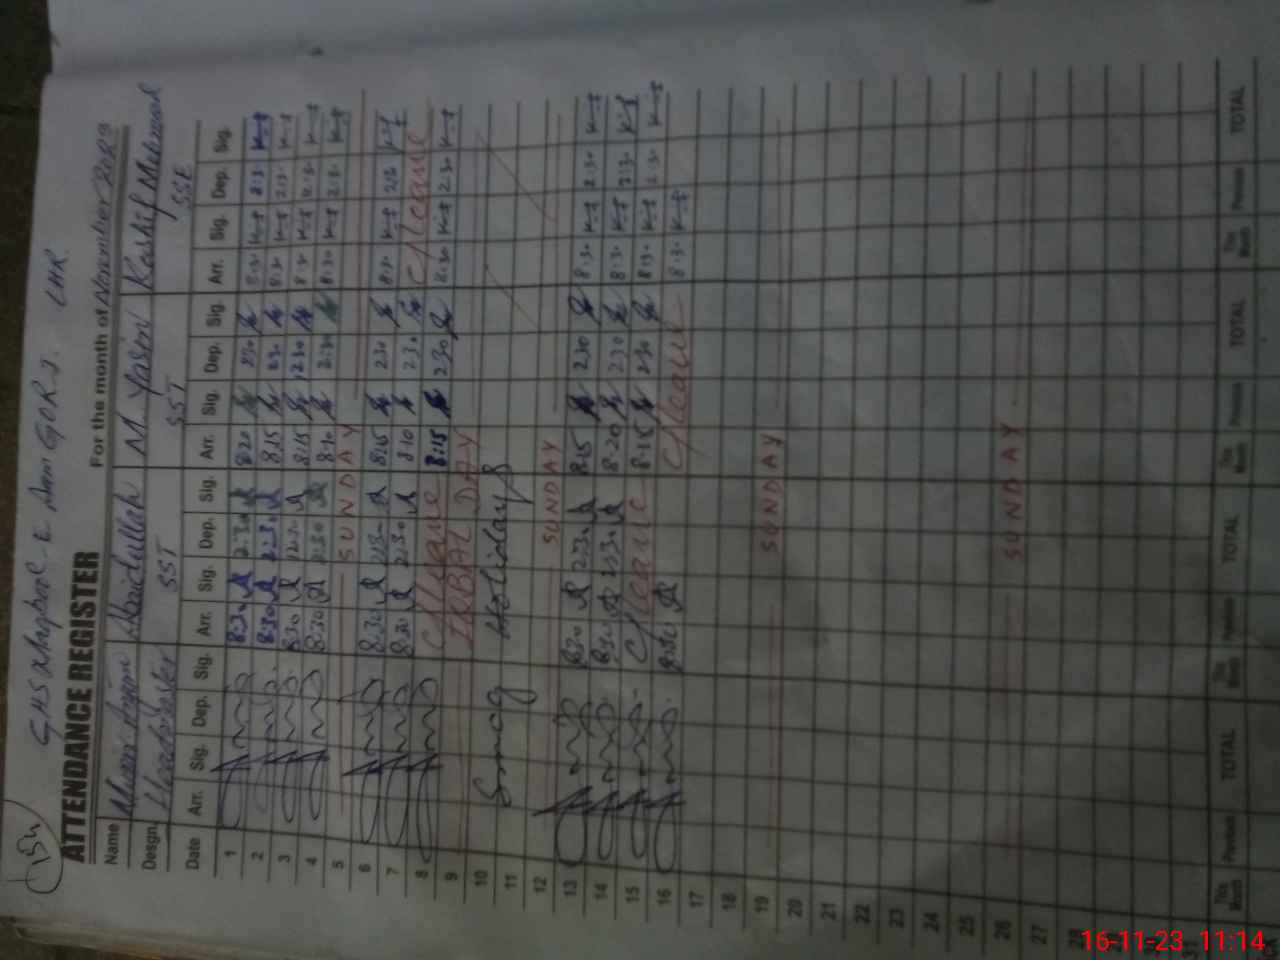 GHS LHR
ATTENDANCE REGISTER For the month of November 2023
Name M. Yasin Kashif Mehmood
Desgn. Headmaster SST SST SSE
Date Arr. Sig. Dep. Sig. Arr. Sig. Dep. Sig. Arr. Sig. Dep. Sig. Arr. Sig. Dep. Sig.
1 8:30 2:30 8:20 2:30 8:30 2:30
2 8:30 2:30 8:15 2:30 8:30 2:30
3 8:30 12:30 8:15 12:30 8:30 12:30
4 8:30 2:30 8:10 2:30 8:30 2:30
5 SUNDAY
6 8:30 2:30 8:15 2:30 8:30 2:30
7 8:30 2:30 8:10 2:30 C/Leave
8 C/Leave 8:15 2:30 8:30 2:30
9 IQBAL DAY
10 Smog Holidays
11
12 SUNDAY
13 8:30 2:30 8:15 2:30 8:30 2:30
14 8:30 2:30 8:20 2:30 8:30 2:30
15 C/Leave 8:15 2:30 8:30 2:30
16 8:30 C/Leave 8:30
17
18
19 SUNDAY
20
21
22
23
24
25
26 SUNDAY
27
28
This Month Previous TOTAL This Month Previous TOTAL This Month Previous TOTAL This Month Previous TOTAL
16-11-23 11:14